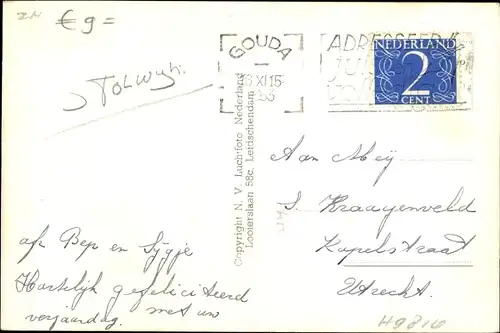 € 9=
STOLWIJK
GOUDA
XI 15
53
ADRESSEER
NEDERLAND
2
CENT
Copyright N. V. Luchtfoto Nederland
Looierslaan 58c, Leidschendam
Aan Mej
S. Kraayenveld
Kapelstraat
Utrecht.
afz Bep en Sijgje
Hartelijk gefeliciteerd
met uw
verjaardag.
H9816